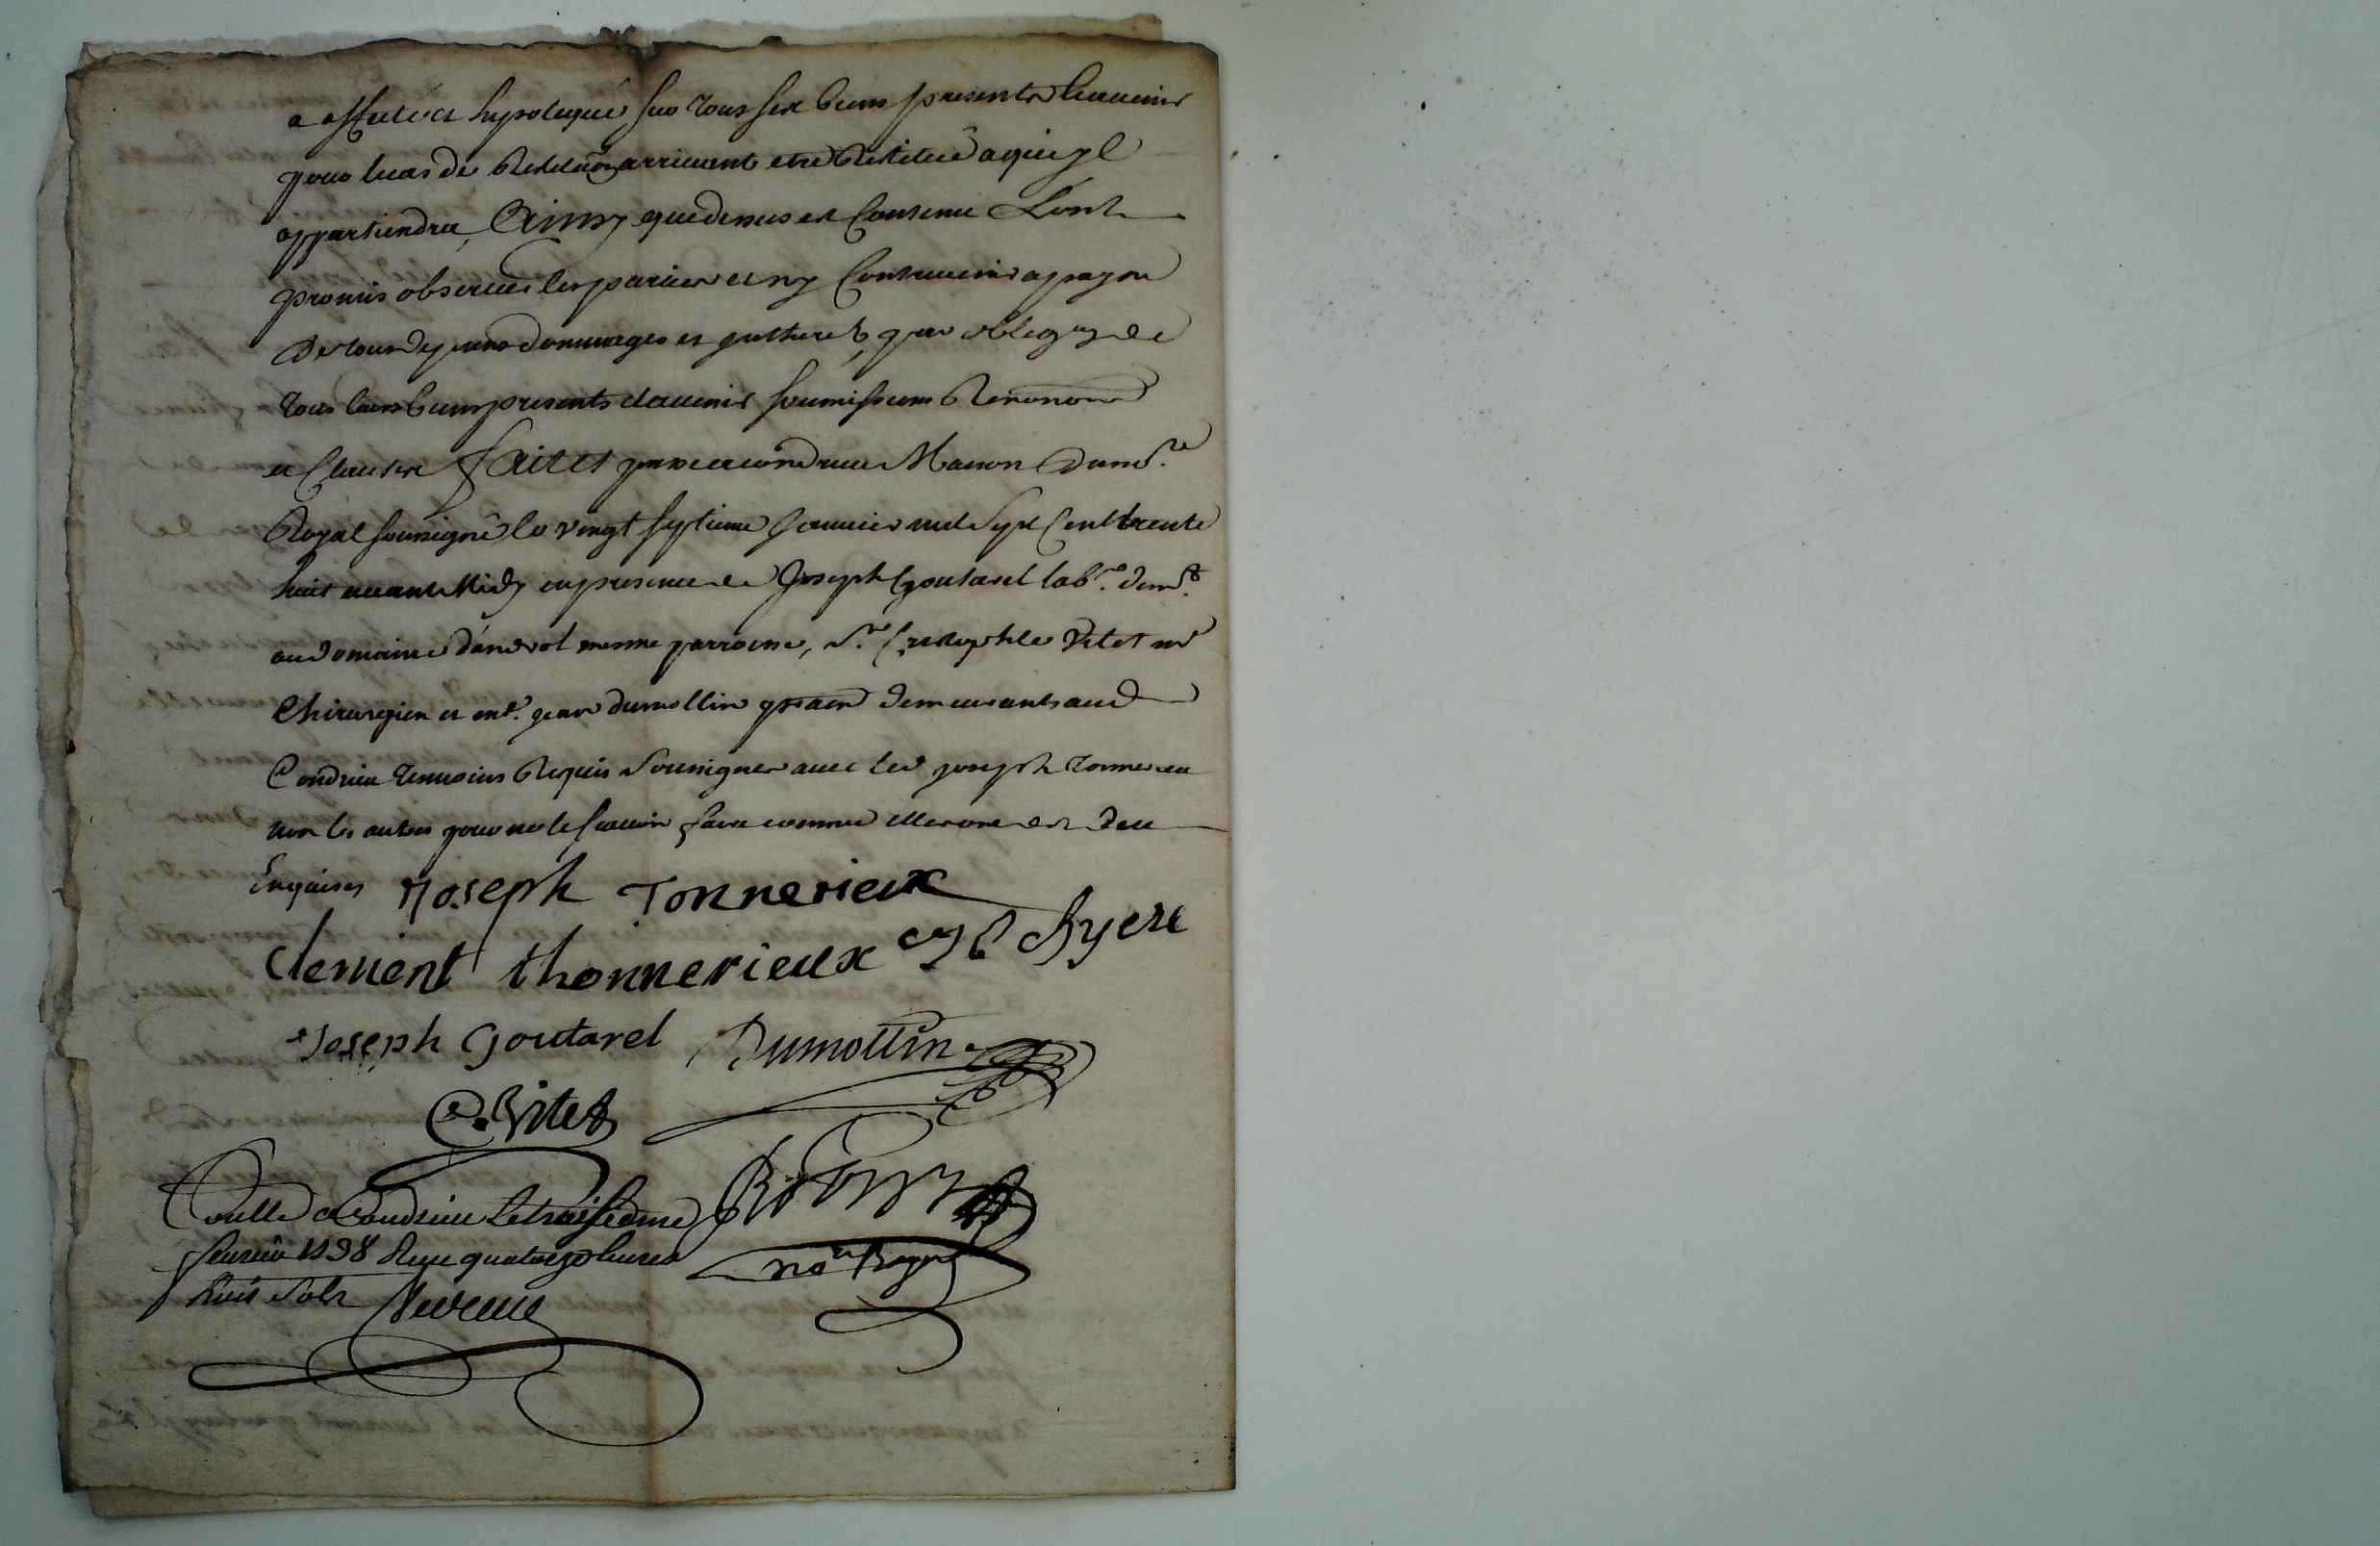 a affecté et hypotequé sur tous ses biens presents & avenir
pour le cas de restitu͠on arrivant etre restitué a qui yl
appartiendra, Ainsy que dessus est contenu L'ont
promis observer les parties et ny contrevenir a peyne
De tous depans dommages et intherets, par oblig͠on de
tous leurs biens presents & avenir soumissions renonon͠s
et clauses faites passé a condrieu Maison du no.re
Royal soussigné le vingt septieme Janvier mil sept cent trente
huit avant Midy en presence de Joseph Goutarel lab.r dem.t
au domaine mesme parroisse, s.r Cristophle Vitet m.e
Chirurgien et ant. jean dumollin demeurants aud
Condrieu temoins requis soussignes avec led joseph tonnerieux
non les autres pour ne le scavoir faire comme elles ont dit de ce
Enquises Joseph Tonnerieux
Clement thonnerieux
Joseph Goutarel Dumollin
C. Vitet
Conllé a Condrieu le troisieme
fevrier 1738 Reçu quatorze livres
huit sols
no.re Royal